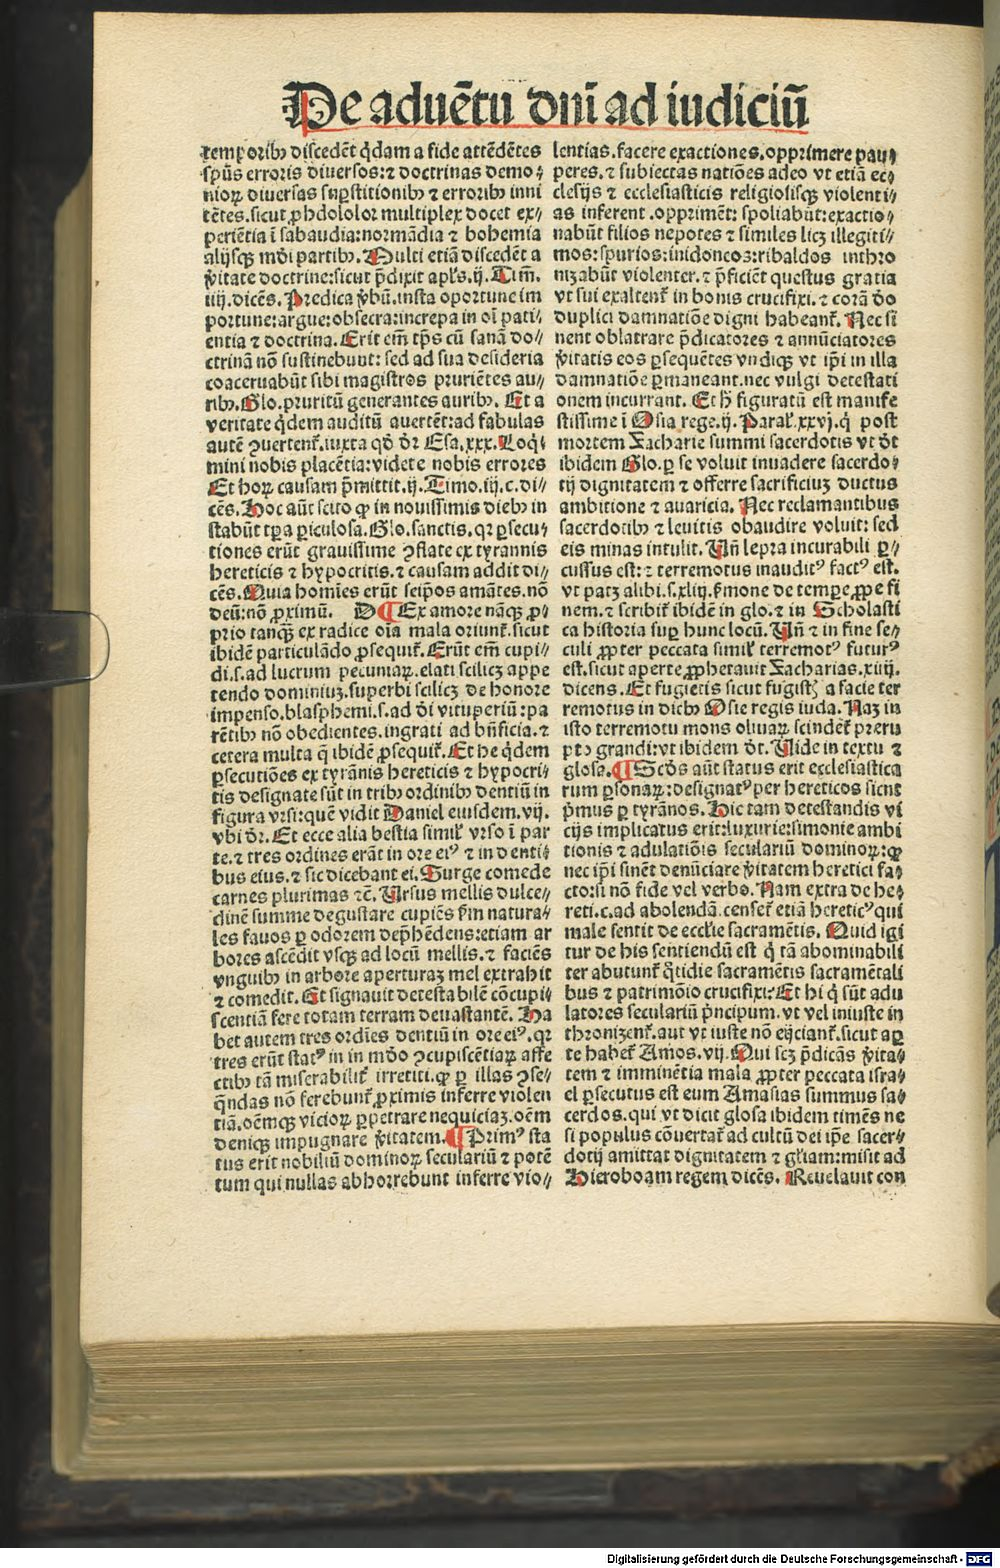 De aduētu dnī ad iudiciū
temꝑoribꝰ discedēt q̇dam a fide attēdētes
spūs erroris diuersos: ⁊ doctrinas demo⸗
nioꝝ diuersas suꝑstitionibꝰ ⁊ erroribꝰ inni
tētes. sicut ꝓhdololor multiplex docet ex⸗
periētia ī sabaudia: normādia ⁊ bohemia
alijsqꝫ mōi partibꝰ. Multi etiā discedēt a
v̓itate doctrine: sicut p̄dixit apl's. ij. Tim̄.
iiij. dicēs. Predica v̓bū. insta oportune im
portune: argue: obsecra: increpa in oī pati⸗
entia ⁊ doctrina. Erit em̄ tp̄s cū sanā do⸗
ctrinā nō sustinebunt: sed ad sua desideria
coaceruabūt sibi magistros pruriētes au⸗
ribꝰ. Glo. pruritū generantes auribꝰ. Et a
veritate q̇dem auditū auertēt: ad fabulas
autē ꝯuertent᷑. iuxta qđ đr Esa. xxx. Loq̇⸗
mini nobis placētia: videte nobis errores
Et hoꝝ causam p̄mittit. ij. Timo. iij. c. di⸗
cēs. Hoc aūt scito ꝙ in nouissimis diebꝰ in
stabūt tp̄a ꝑiculosa. Glo. sanctis. qꝛ ꝑsecu⸗
tiones erūt grauissime ꝯflate ex tyrannis
hereticis ⁊ hypocritis. ⁊ causam addit di⸗
cēs. Quia homīes erūt seip̄os amātes. nō
deū: nō ꝓximū. D ¶ Ex amore nāqꝫ ꝓ⸗
prio tanqꝫ̄ ex radice oīa mala oriunt᷑. sicut
ibidē particulādo ꝓsequit᷑. Erūt em̄ cupi⸗
di. s. ad lucrum pecuniaꝝ. elati scilicꝫ appe
tendo dominiuꝫ. superbi scilicꝫ de honore
impenso. blasphemi. s. ad đi vituꝑiū: pa
rētibꝰ nō obedientes. ingrati ad bn̄ficia. ⁊
cetera multa q̄ ibidē ꝓsequit᷑. Et he q̇dem
ꝑsecutiōes ex tyrānis hereticis ⁊ hypocri⸗
tis designate sūt in tribꝰ ordinibꝰ dentiū in
figura vrsi: quē vidit Daniel eiusdem. vij.
vbi đr. Et ecce alia bestia simil' vrso ī par
te. ⁊ tres ordines erāt in ore eiꝰ ⁊ in denti⸗
bus eius. ⁊ sic dicebant ei. Surge comede
carnes plurimas ⁊c̄. Vrsus mellis dulce⸗
dinē summe degustare cupiēs ẜm natura⸗
les fauos ꝑ odorem dep̄hēdens: etiam ar
bores ascēdit vsqꝫ ad locū mellis. ⁊ faciēs
vnguibꝰ in arbore aperturaꝫ mel extrahit
⁊ comedit. Et signauit detestabilē cōcupi⸗
scentiā fere totam terram deuastantē. Ha
bet autem tres ordīes dentiū in ore eiꝰ. qꝛ
tres erūt statꝰ in in mōdo ꝯcupiscētiaꝝ affe
ctibꝰ tā miserabilit᷑ irretiti. ꝙ ꝑ illas ꝯse⸗
q̄ndas nō ferebunt᷑ ꝓximis inferre violen
tiā. oēmqꝫ vicioꝝ ꝑpetrare nequiciaꝫ. oēm
deniqꝫ impugnare v̓itatem. ¶ Primꝰ sta
tus erit nobiliū dominoꝝ seculariū ⁊ potē
tum qui nullas abhorrebunt inferre vio⸗
lentias. facere exactiones. opprimere pau⸗
peres. ⁊ subiectas natiōes adeo vt etiā ec⸗
clesijs ⁊ ecclesiasticis religiosisqꝫ violenti⸗
as inferent. opprimēt: spoliabūt: exactio⸗
nabūt filios nepotes ⁊ similes licꝫ illegiti⸗
mos: spurios: inidoneos: ribaldos inthro
nizabūt violenter. ⁊ p̄ficiēt questus gratia
vt sui exaltent᷑ in bonis crucifixi. ⁊ corā đo
duplici damnatiōe digni habeant᷑. Nec si
nent oblatrare p̄dicatores ⁊ annūciatores
v̓itatis eos ꝑsequētes vndiqꝫ vt ip̄i in illa
damnatiōe ꝑmaneant. nec vulgi detestati
onem incurrant. Et h̄ figuratū est manife
stissime ī Osia rege. ij. Paral'. xxvj. q̇ post
mortem Zacharie summi sacerdotis vt đt
ibidem Glo. ꝑ se voluit inuadere sacerdo⸗
tij dignitatem ⁊ offerre sacrificiuꝫ ductus
ambitione ⁊ auaricia. Nec reclamantibus
sacerdotibꝰ ⁊ leuitis obaudire voluit: sed
eis minas intulit. Vn̄ lepra incurabili ꝑ⸗
cussus est: ⁊ terremotus inauditꝰ factꝰ est.
vt patꝫ alibi. s. xliij. ẜmone de tempe ꝓpe fi
nem. ⁊ scribit᷑ ibidē in glo. ⁊ in Scholasti
ca historia suꝑ hunc locū. Vn̄ ⁊ in fine se⸗
culi ꝓpter peccata simil' terremotꝰ futurꝰ
est. sicut aperte ꝓphetauit Zacharias. xiiij.
dicens. Et fugietis sicut fugist᷑ a facie ter
remotus in diebꝰ Osie regis iuda. Naꝫ in
isto terremotu mons oliuaꝝ scindet᷑ preru
pto grandi: vt ibidem đt. Vide in textu ⁊
glosa. ¶ Scđs aūt status erit ecclesiastica
rum ꝑsonaꝝ: designatꝰ per hereticos sicut
p̓mus ꝑ tyrānos. Hic tam detestandis vi
cijs implicatus erit: luxurie: simonie ambi
tionis ⁊ adulatiōis seculariū dominoꝝ: ꝙ
nec ip̄i sinēt denūciare v̓itatem heretici fa⸗
cto: si nō fide vel verbo. Nam extra de he⸗
reti. c. ad abolendā. censet᷑ etiā hereticꝰ qui
male sentit de eccl'ie sacramētis. Quid igi
tur de his sentiendū est q̇ tā abominabili
ter abutunt᷑ q̊tidie sacramētis sacramētali
bus ⁊ patrimōio crucifixi: Et hi q̇ sūt adu
latores seculariū p̓ncipum. vt vel iniuste in
thronizent᷑. aut vt iuste nō eijciant᷑. sicut aꝑ
te habet᷑ Amos. vij. Qui scꝫ p̄dicās v̓ita⸗
tem ⁊ imminētia mala ꝓpter peccata isra⸗
el ꝑsecutus est eum Amasias summus sa⸗
cerdos. qui vt dicit glosa ibidem timēs ne
si populus cōuertat᷑ ad cultū dei ip̄e sacer⸗
dotij amittat dignitatem ⁊ gl'iam: misit ad
Hieroboam regem dicēs. Reuelauit con
Digitalisierung gefördert durch die Deutsche Forschungsgemeinschaft - DFG